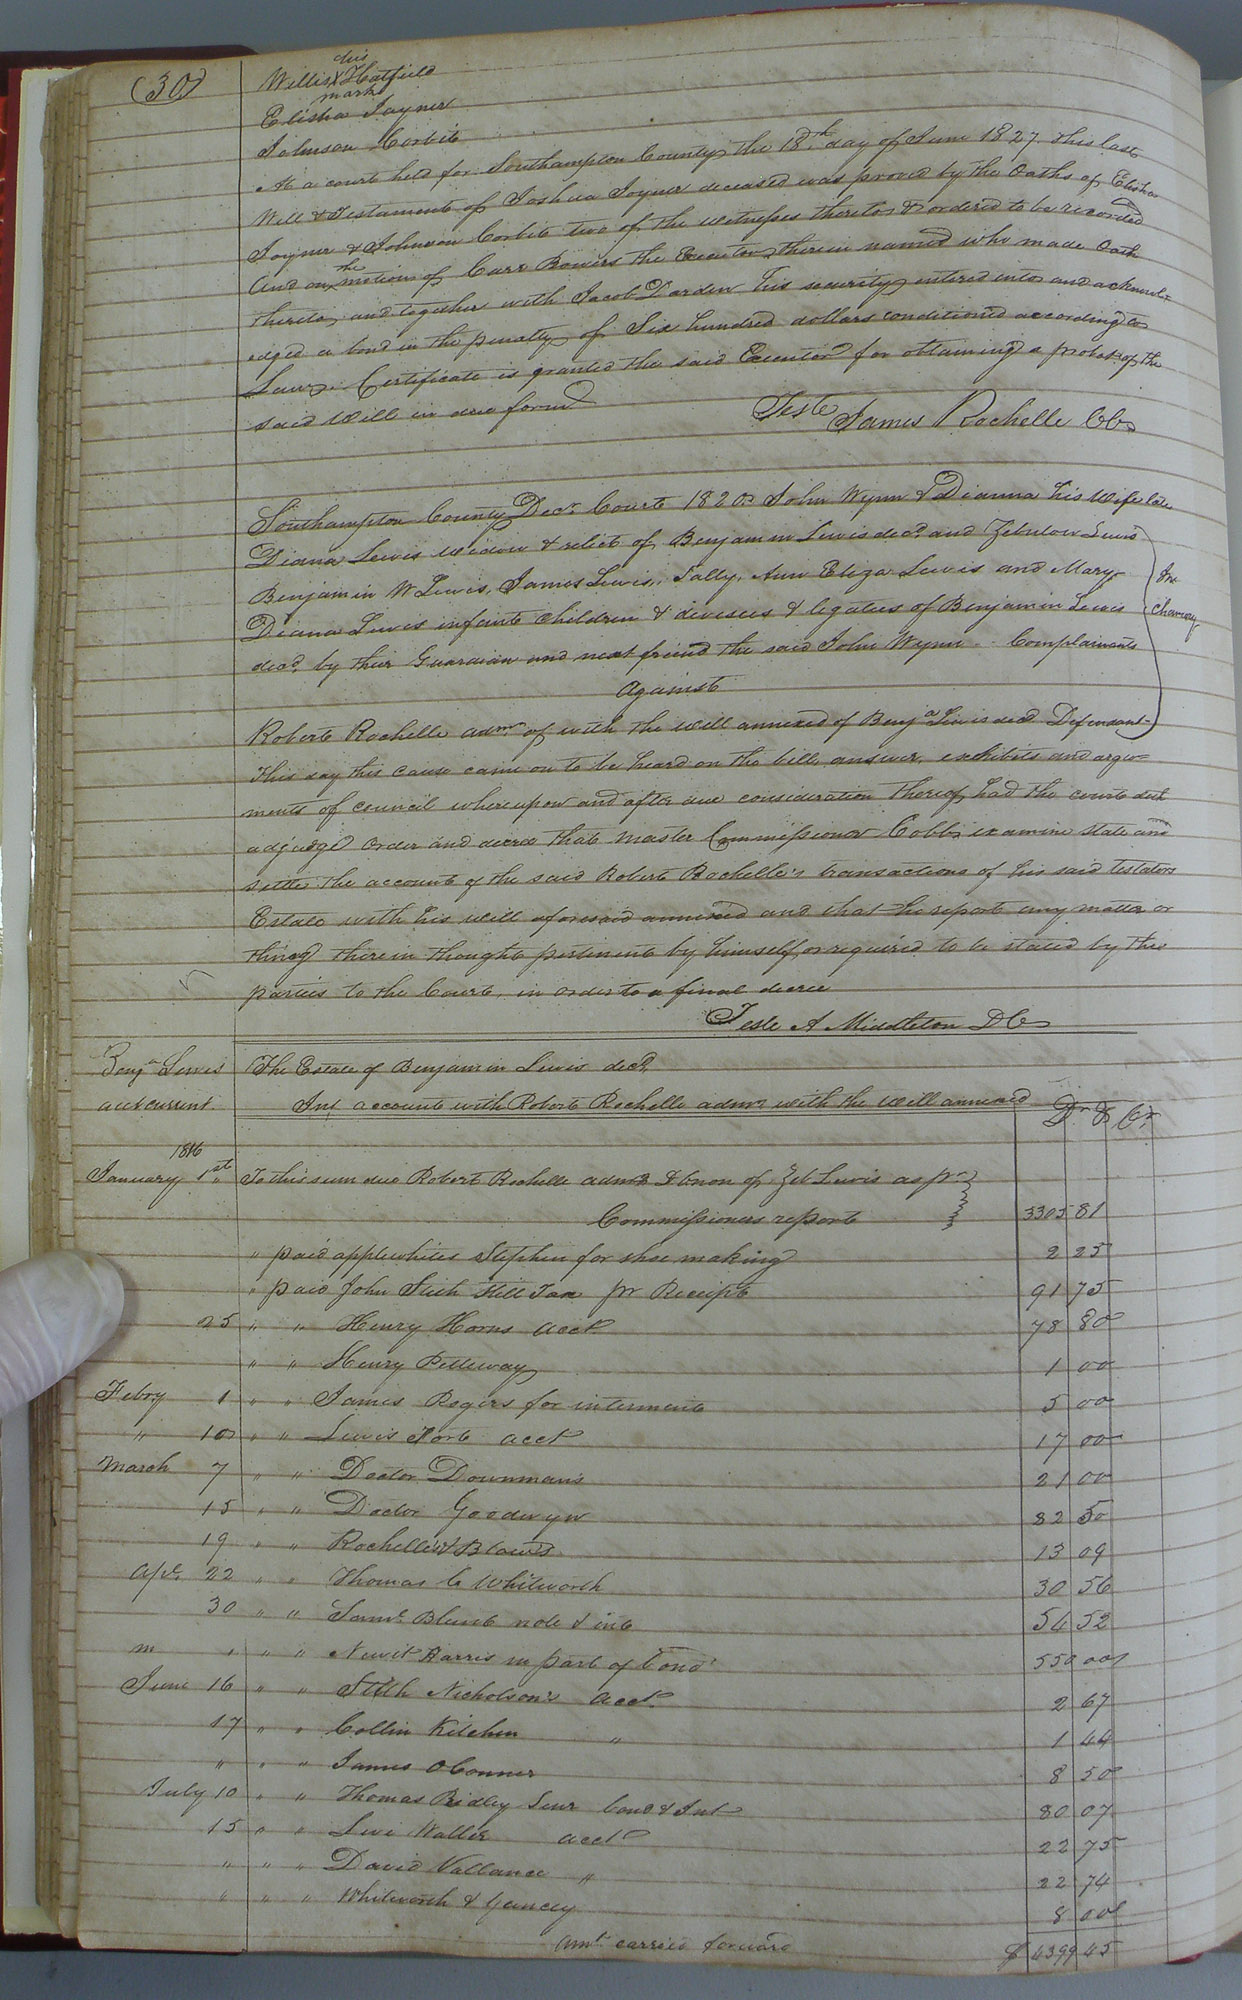 (30)
his
Willis X Hatfield
mark
Elisha Joyner
Johnson Corbit
At a court held for Southampton County the 18th day of June 1827. This last
Will & Testament of Joshua Joyner deceased was proved by the Oaths of Elisha
Joyner & Johnson Corbit two of the witnesses thereto & ordered to be recorded
And on the motion of Carr Bowers the Executor therein named who made Oath
thereto, and together with Jacob Darden his security entered into and acknowl-
edged a bond in the penalty of Six hundred dollars conditioned according to
Law. Certificate is granted the said Executor for obtaining a probat of the
said Will in due form
Teste James Rochelle CC
Southampton County Decr Court 1820 John Wynn & Dianna his Wife late
Diana Lewis widow & relict of Benjamin Lewis decd and Zebulon Lewis
Benjamin W Lewis, James Lewis, Sally, Ann Eliza Lewis and Mary
Diana Lewis infant children & devisees & legatees of Benjamin Lewis
decd by their Guardian and next friend the said John Wynn Complainants
In
chancery
Against
Robert Rochelle admr of with the will annexed of Benja Lewis decd Defendant
This day this cause came on to be heard on the bill, answer, exhibits and argu-
ments of council whereupon and after due consideration thereof had the court doth
adjudge order and decree that Master Commissioner Cobbs examine state and
settle the account of the said Robert Rochelle's transactions of his said testators
Estate with his will aforesaid annexed and that he report any matter or
thing therein thought pertinent by himself, or required to be stated by the
parties to the Court, in order to a final decree
Teste A Middleton DC
Benja Lewis The Estate of Benjamin Lewis decd
acct current. In account with Robert Rochelle admr with the will annexed Dr & Cr
1816
January 1st To this sum due Robert Rochelle admr D bnon of Zeb Lewis as pr
Commissioners report 3305 81
" paid applewhites Stephen for shoe making 2 25
" paid John Stith Still Tax pr Receipt 91 75
25 " " Henry Horns acct 78 80
" " Henry Petteway 1 00
Febry 1 " " James Rogers for interment 5 00
" 10 " " Lewis Fort acct 17 00
March 7 " " Doctor Downman's 21 00
15 " " Doctor Goodwyn 82 50
19 " " Rochelle & Blows 13 09
Apl. 22 " " Thomas C Whitworth 30 56
30 " " Saml Blunt note & int 54 52
m " " " Newit Harris in part of bond 550 00
June 16 " " Stith Nicholson's acct 2 67
17 " " Collin Kitchen " 1 44
" " " James OConner 8 50
July 10 " " Thomas Ridley Senr bond & Int 80 07
15 " " Levi Waller acct 22 75
" " " David Vallance " 22 74
" " " Whitworth & Yancey 8 00
Amt carried forward $ 4399 45